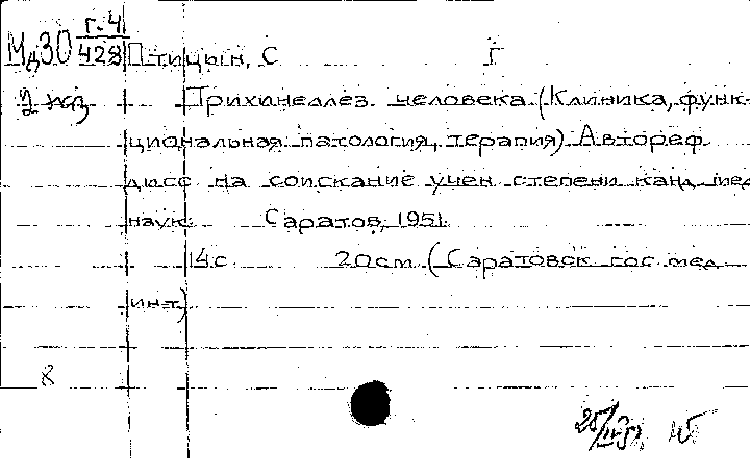 Мд30 г.4/428 Птицын, С Г
2 экз Трихинеллез человека (Клиника, функ-
циональная патология, терапия) Автореф
дисс на соискание учен степени канд мед
наук Саратов, 1951.
14 с 20 см (Саратовск гос мед
ин-т)
8